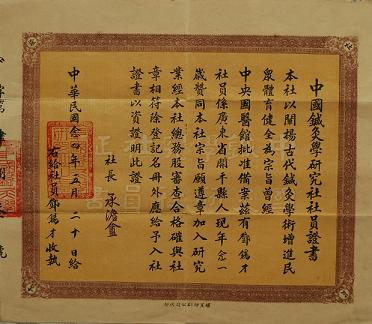 中國鍼灸學研究社社員證書
本社以闡揚古代鍼灸學術增進民
眾體育健全為宗旨曾經
中央國醫館批准備案茲有鄧錫才
社員係廣東省開平縣人現年念一
歲贊同本社宗旨願遵章加入研究
業經本社總務股審查合格確與社
章相符除登記名冊外應給予入社
證書以資證明此證
社長 承澹盦
中華民國念四年五月二十日給
右給社員鄧錫才收執